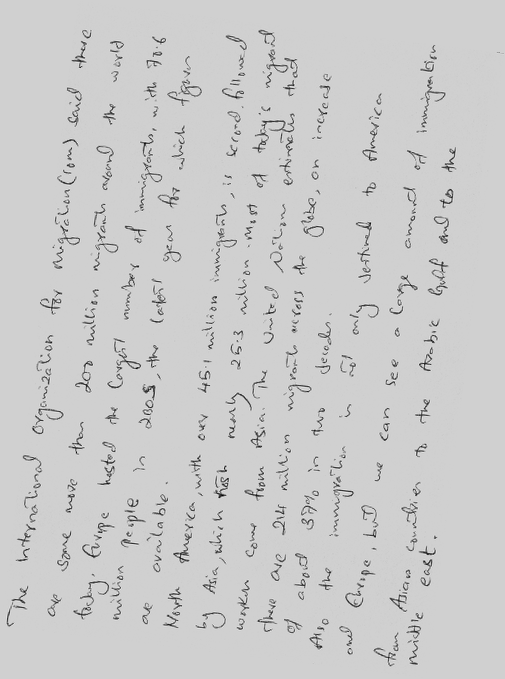 The International Organization for migration (iom) said there
are some more than 200 million migrants around the world
today. Europe hosted the largest number of immigrants, with 70.6
million people in 2005, the latest year for which figures
are available.
North America, with over 45.1 million immigrants, is second, followed
by Asia, which nearly 25.3 million. Most of today's migrant
workers come from Asia. The United Nations estimates that
there are 214 million migrants across the globe, an increase
of about 37% in two decades.
Also the immigration is not only destined to America
and Europe, but we can see a large amount of immigration
from Asian countries to the Arabic Gulf and to the
middle east.